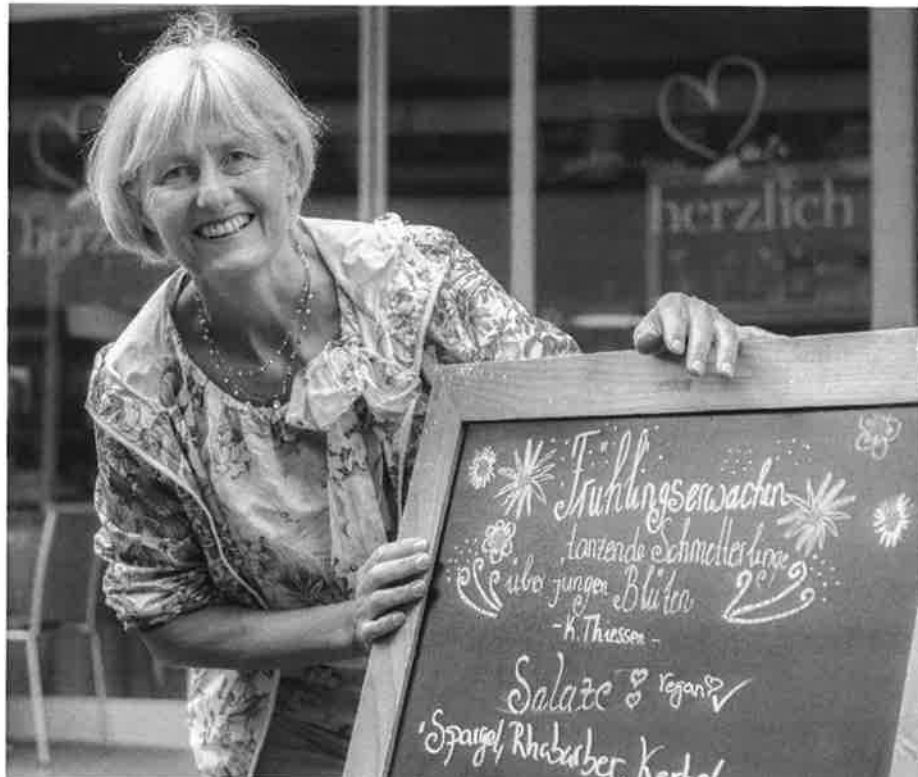 herzlich
Frühlingserwachen
tanzende Schmetterlinge
über jungen Blüten
- K. Thiessen -
Salate vegan
Spargel, Rhabarber